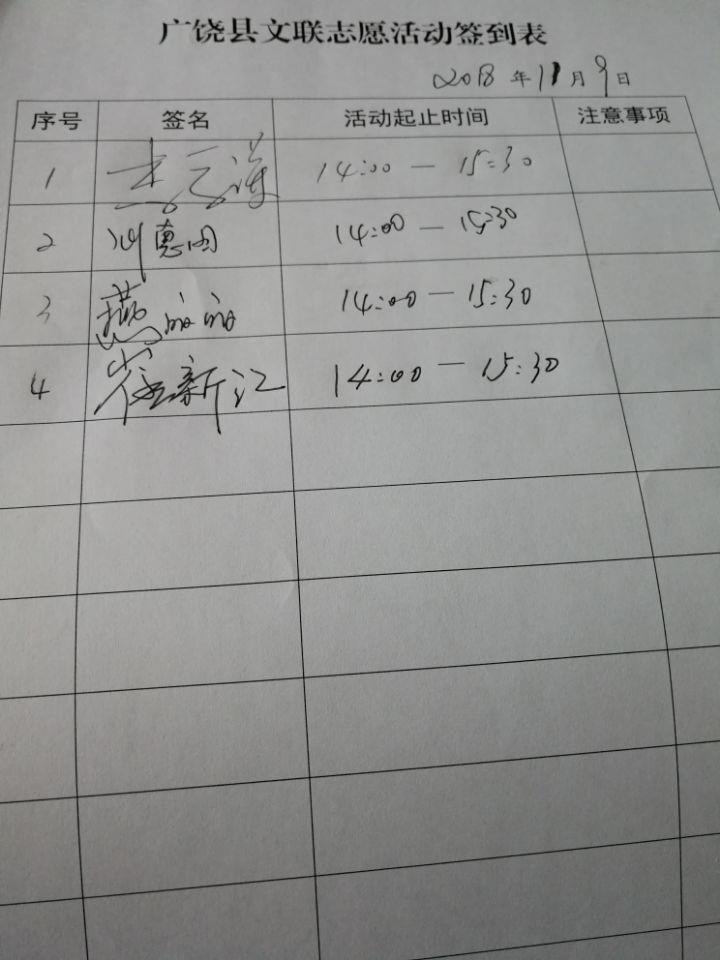 广饶县文联志愿活动签到表
2018年11月9日
序号 签名 活动起止时间 注意事项
1 14:00 — 15:30
2 14:00 — 15:30
3 14:00 — 15:30
4 崔新江 14:00 — 15:30